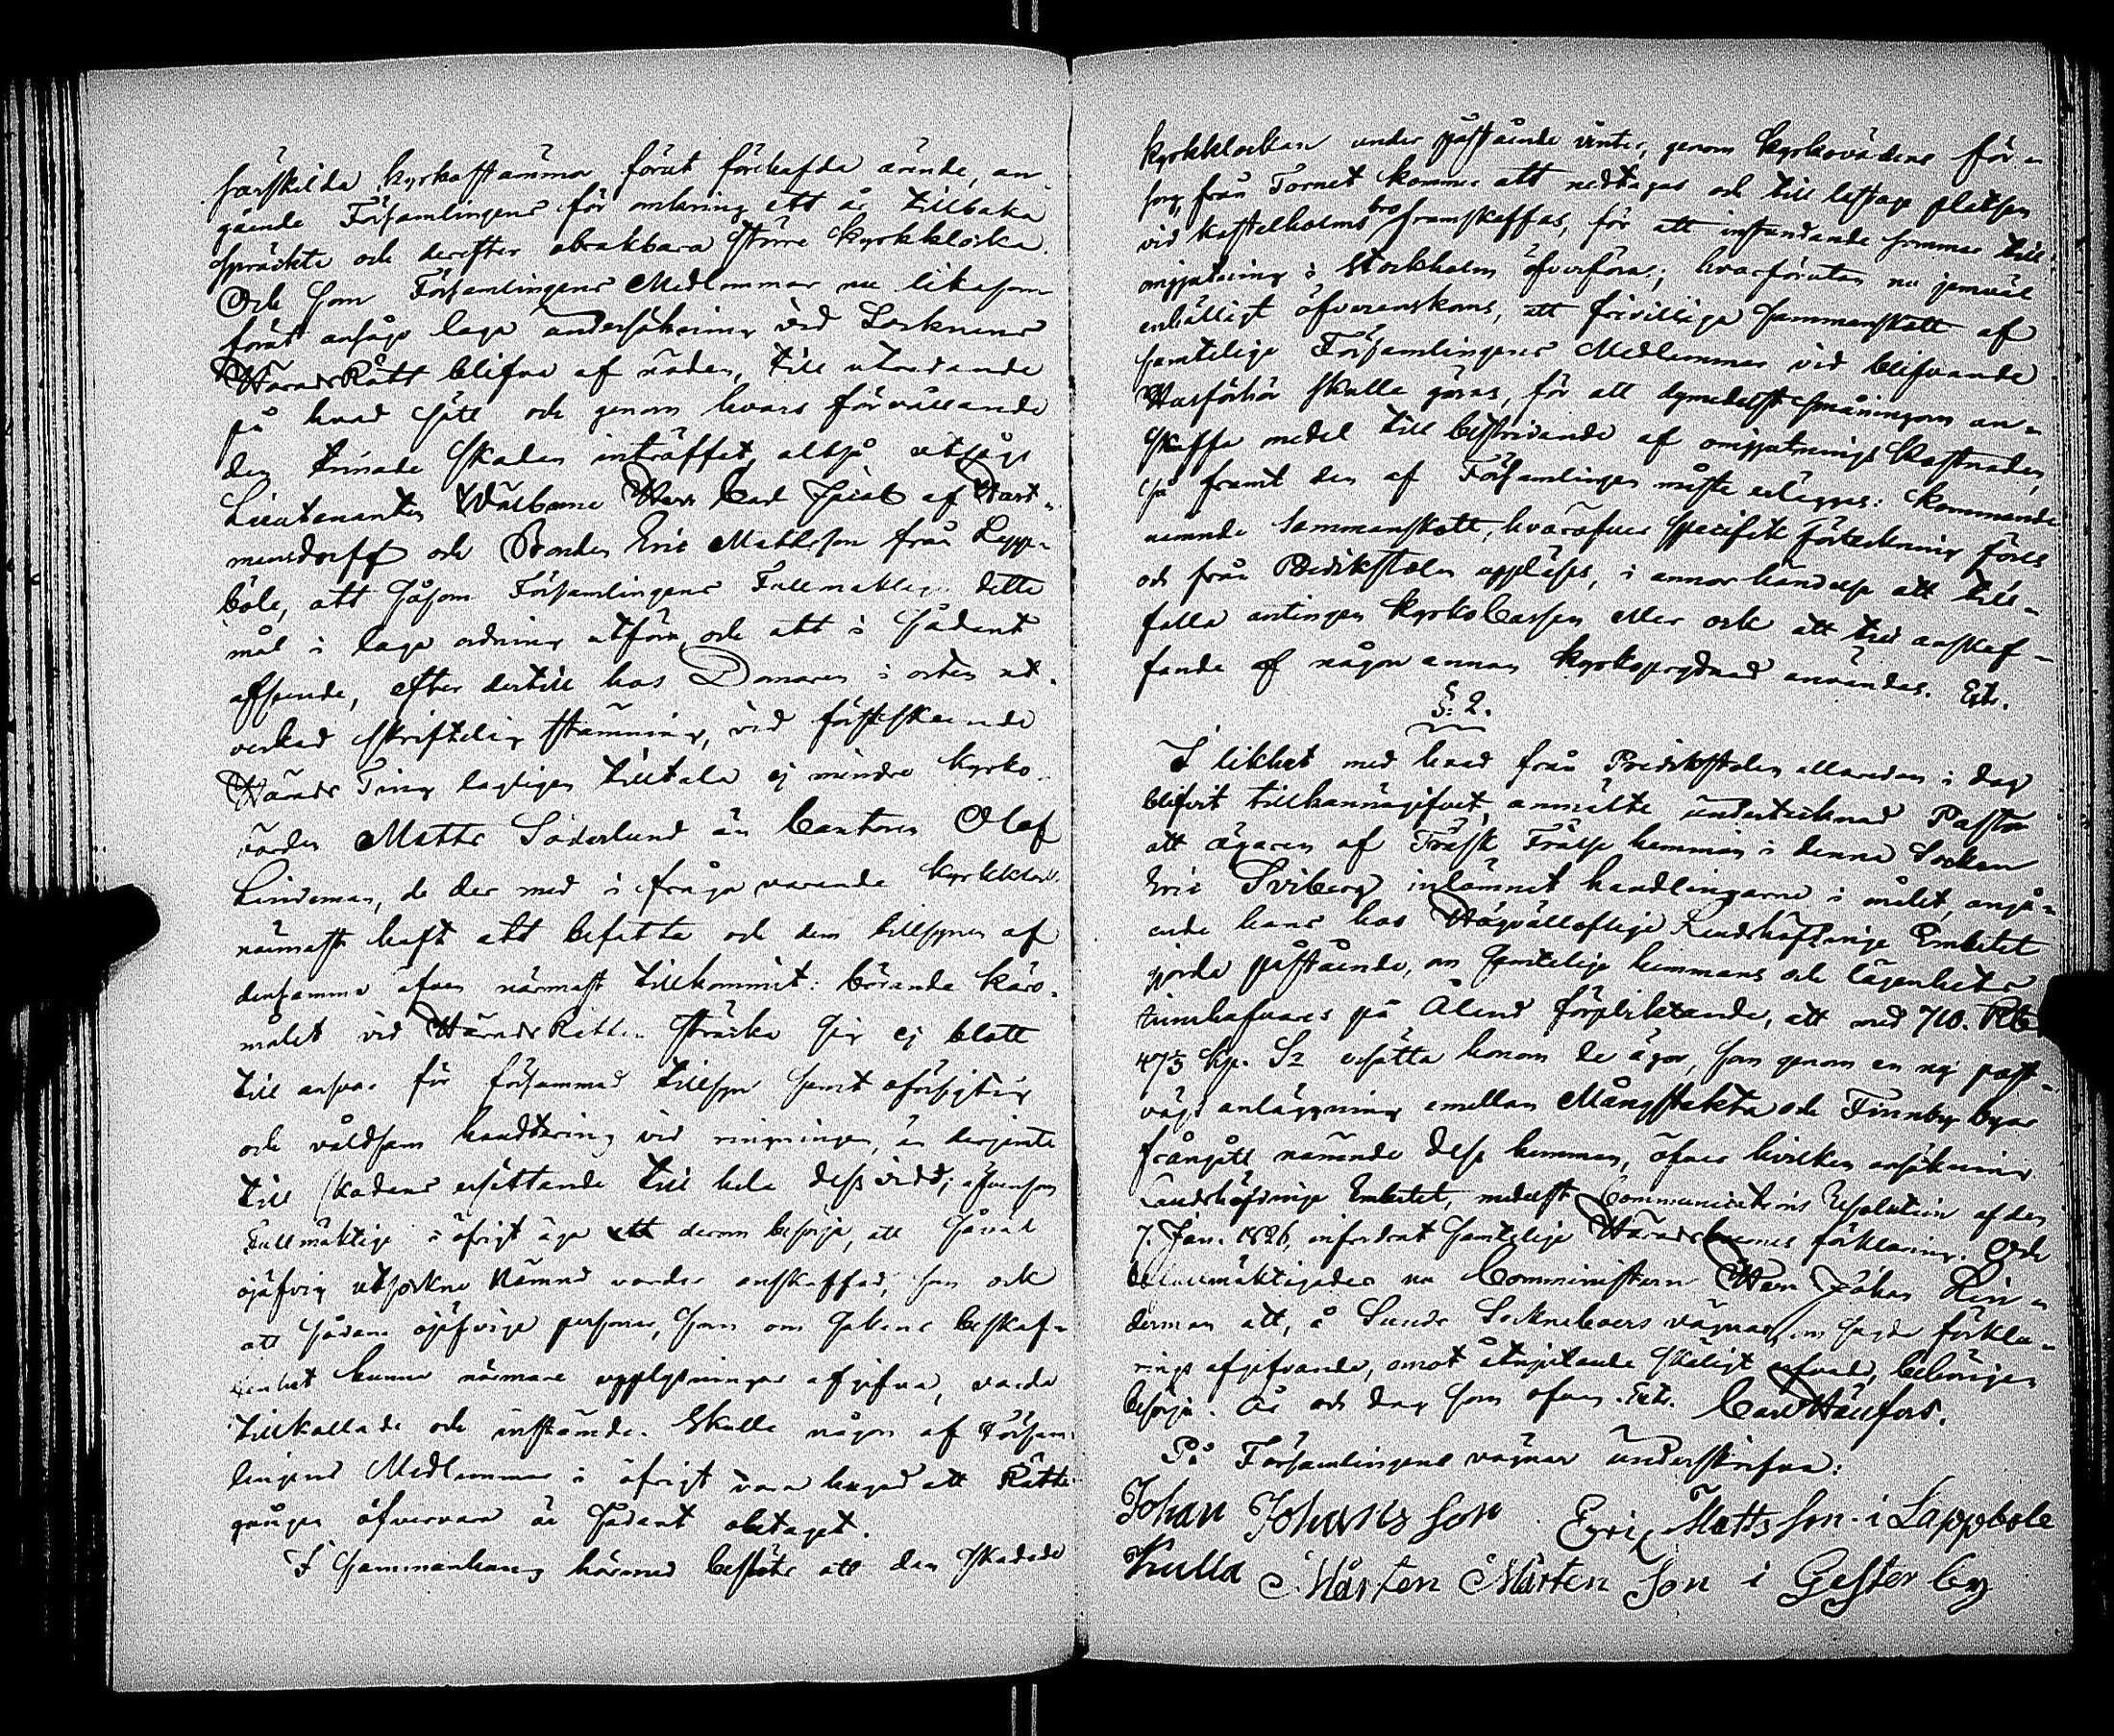 särskilda kyrkostämmor förut förehafda ärende, an-
gående Församlingens för omkring ett år tillbaka
spräckta och derefter obrukbara större kyrkklocka.
Och som Församlingens Medlemmar nu likasom
förut ansågo laga undersökning vid Socknens
HäradsRätt blifva af nöden, till utredande
på hvad sätt och genom hvars förvållande
den timade skaden inträffat, altså utsågs
Lieutenanten Wälborne Herr Carl Jacob af
och Bonden Eric Mattsson från Lapp-
böle, att såsom Församlingens Fullmäktige detta
mål i laga ordning utföra, och att i sådant
afseende, efter dertill hos Domaren i orten ut-
verkad skriftelig stämning, vid förstskeende
Härads Ting lagligen tilltala ej mindre kyrko-
värden Matts Söderlund än Cantoren Olof
Lindeman, de der med i fråga varande kyrkklocka
närmast haft att befatta och dem tillsynen af
densamma äfven närmast tillkommit: börande käro-
målet vid HäradsRätten sträcka sig ej blott
till ansvar för försummad tillsyn samt oförsigtig
och våldsam handtering vid ringningen, än derjemte
till skadens ersättande till hela dess vidd; äfvensom
Fullmäktige i öfrigt äga att derom besörja, att såväl
ojäfvig utsockne Nämnd varder anskaffad, som ock
att sådane ojäfvige personer, som om sakens beskaf-
fenhet kunna närmare upplysningar afgifva, varda
tillkallade och instämde. Skulle någon af Försam-
lingens Medlemmar i öfrigt vara hugad att Rätte-
gången öfvervara är sådant obetaget.
I sammanhang härmed beslöts att den skadade
kyrkklockan under påstående vinter, genom kyrkovärdens för-
sorg, från Tornet kommer att nedtagas och till lastage platsen
vid Kastelholms bro framskaffas, för att instundande sommar till
omgjutning i Stockholm öfverföras; hvarförutan nu jemväl
enhälligt öfverenskoms, att frivillige sammanskott af
samtelige Församlingens Medlemmar vid blifvande
Husförhör skulle göras, för att dymedelst småningom an-
skaffa medel till bestridande af omgjutnings kostnaden,
så framt den af Församlingen måste erläggas: kommande
nemnde sammanskott, hvaröfver specifik förteckning föres
och från Predikstolen uppläses, i annor händelse att till-
falla antingen kyrko Cassan eller ock att till anskaf-
fande af någon annan kyrkoprydnad användas. Uts.
§: 2.
I likhet med hvad från Predikstolen allaredan i dag
blifvit tillkännagifvet, anmälte undertecknad Pastor
att ägaren af Träsk Frälse hemman i denna Socken
Eric Sviberg inlämnat handlingarne i målet, angå-
ende hans hos Högvällofliga Landshöfdinge Embetet
gjorda påstående, om samtelige hemmans och lägenhets
innehafvares på Åland förpliktande, att med 710. Rb
47⅓ kp. Sr ersätta honom de ägor, som genom en ny post-
vägs anläggning emellan Mångstekta och Finnby byar
frångått nämnde dess hemman, öfver hvilken ansökning
Landshöfdinge Embetet, medelst Communications Resolution af den
7. Jan. 1826, infordrat samtelige Häradsboernes förklaring. Och
befullmäktigades nu Comministern Herr Johan Lin-
derman att, å Sunds Sockneboers vägnar, om sagde förkla-
rings afgifvande, emot åtnjutande skäligt arfvode, behörigen
besörja. År och dag som ofvan. Uts. Carl Häufors.
På Församlingens vägnar underskrifva:
Johan Johans Son Eyric Matts Son i Lappbole
Kulla Mårten Mårten Son i Gesterby